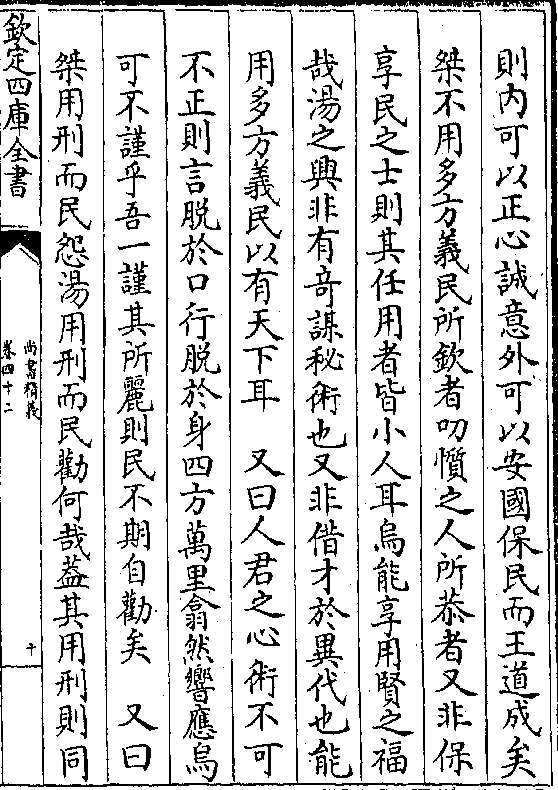 則内可以正心誠意外可以安國保民而王道成矣
桀不用多方義民所欽者叨懫之人所恭者又非保
享民之士則其任用者皆小人耳烏能享用賢之福
哉湯之興非有竒謀秘術也又非借才於異代也能
用多方義民以有天下耳　又曰人君之心術不可
不正則言脱於口行脱於身四方萬里翕然響應烏
可不謹乎吾一謹其所麗則民不期自勸矣　又曰
桀用刑而民怨湯用刑而民勸何哉葢其用刑則同
欽定四庫全書
尚書精義
卷四十二
十